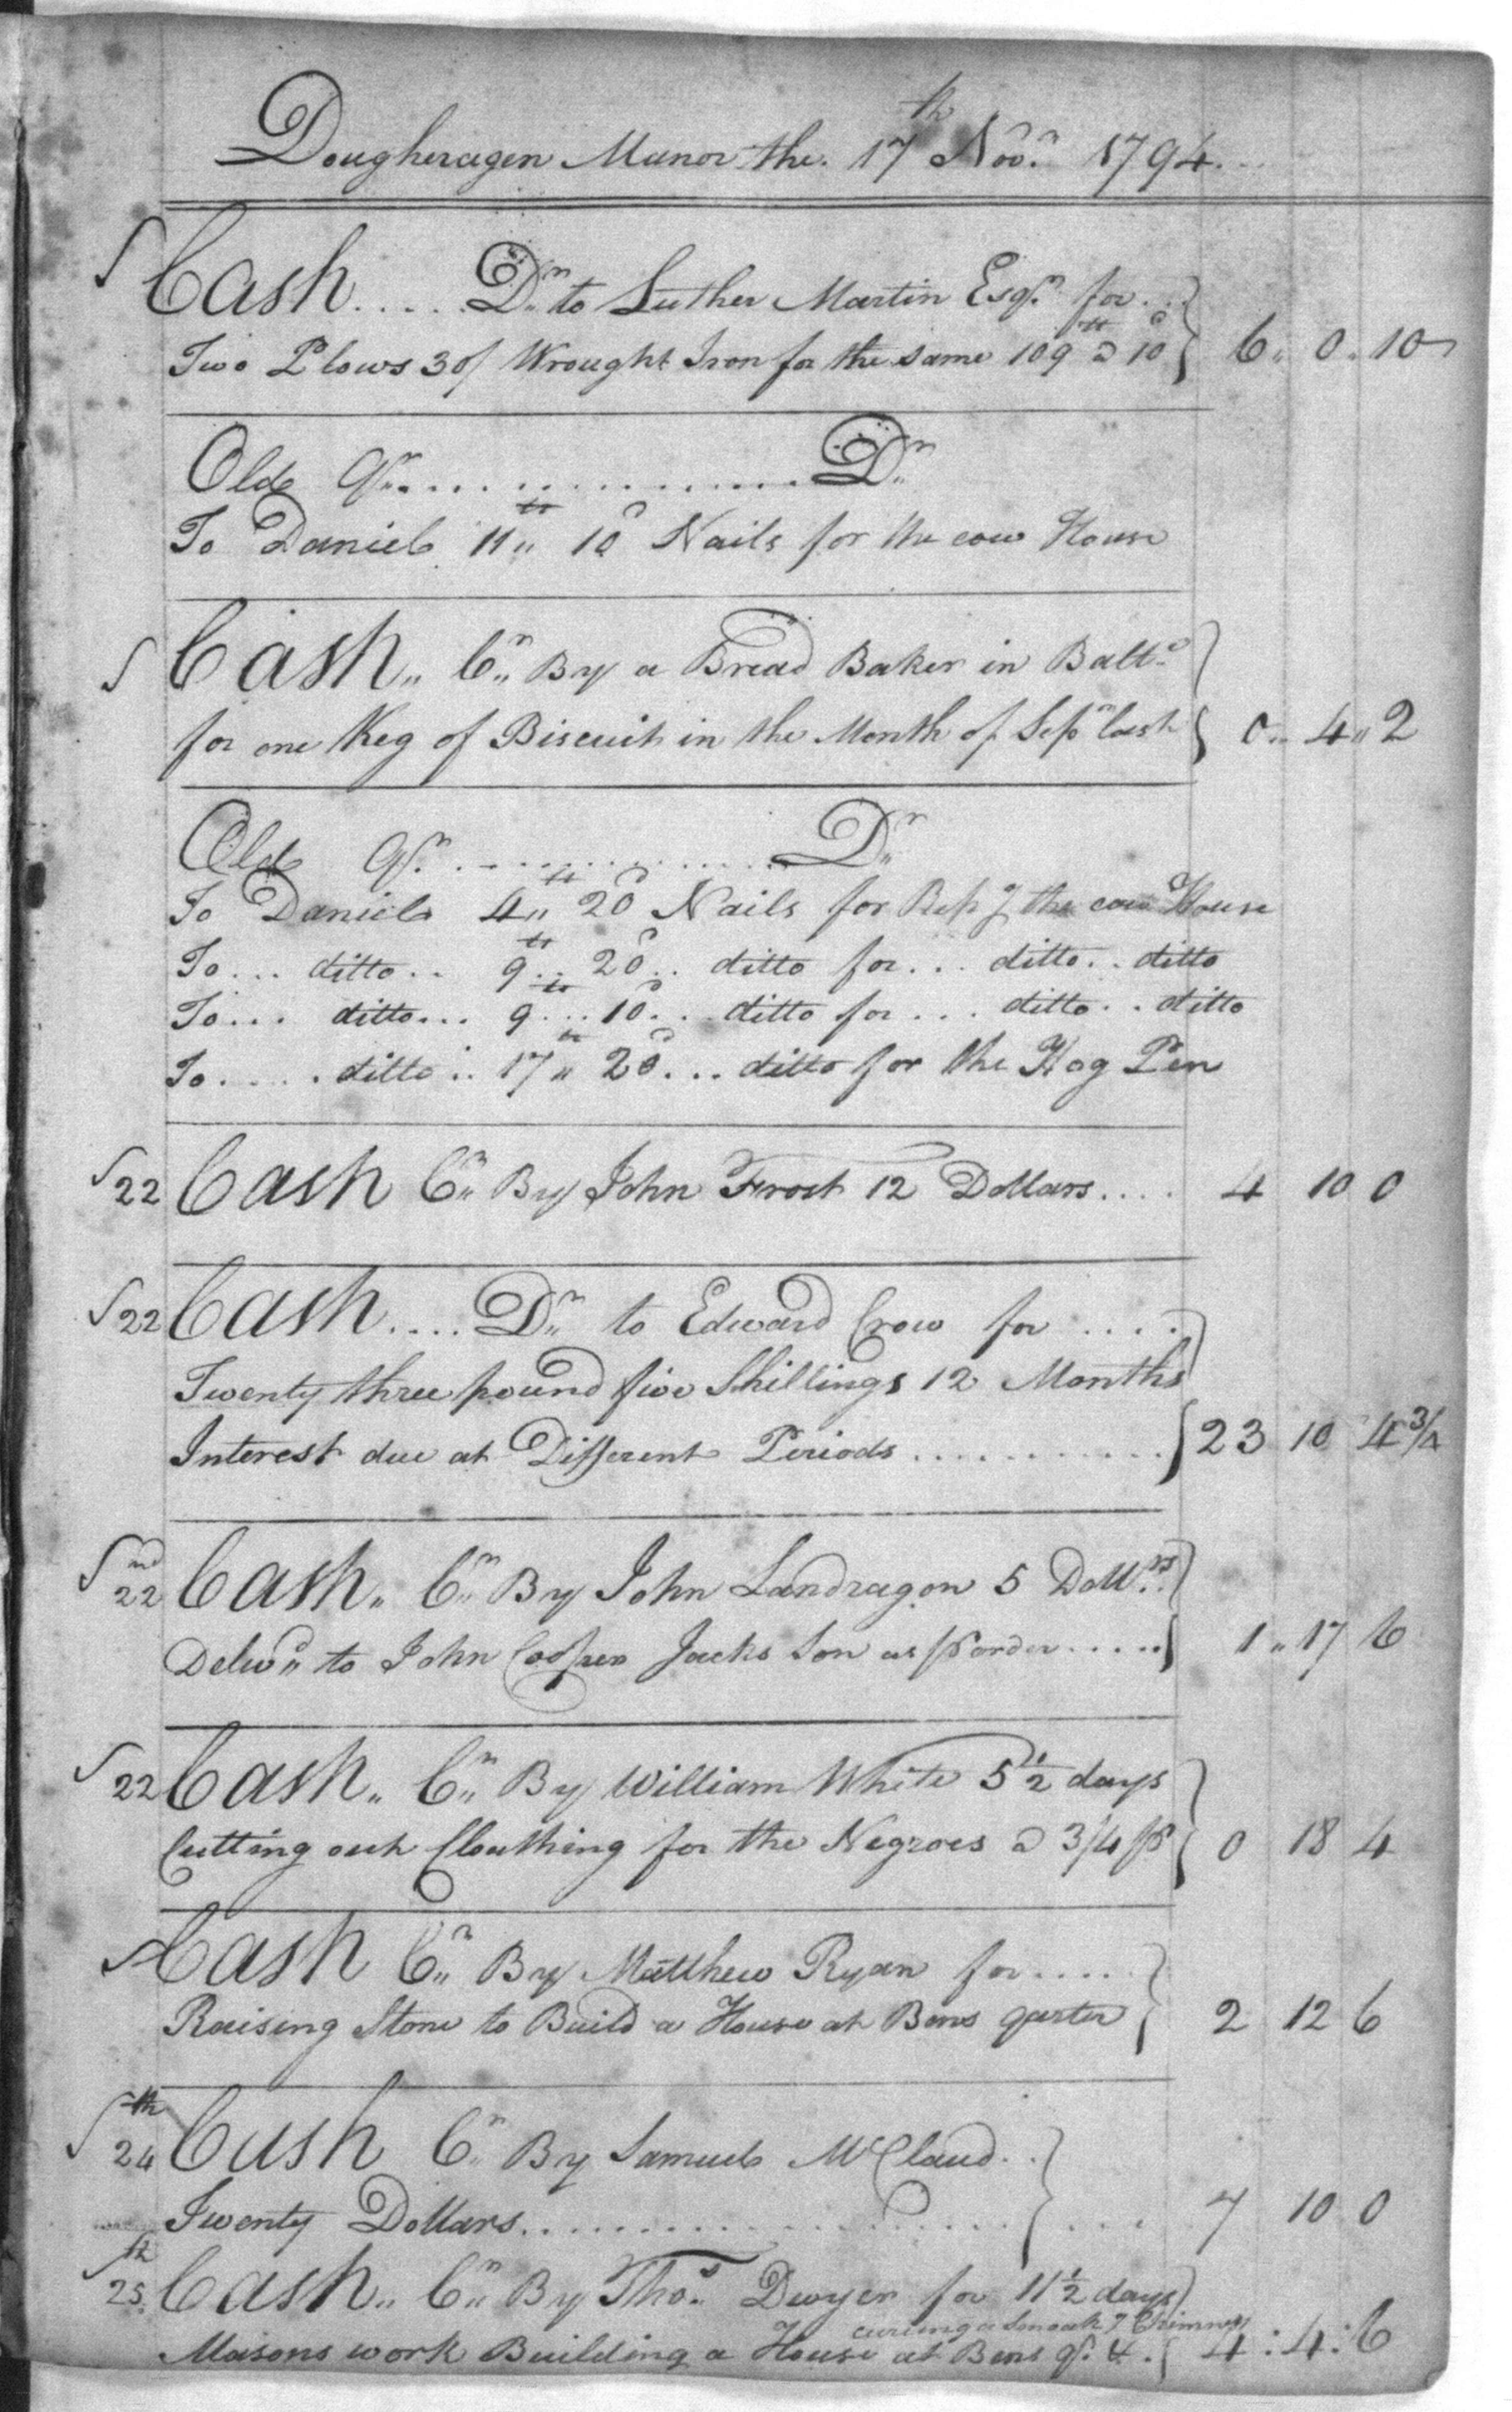 Dougheragen Manor the. 17th Novr. 1794...
Cash.... Dr to Luther Martin Esqr. for...
Two Plows 30/ Wrought Iron for the same 109 tt @ 10d } 6" 0" 10
Old Qr.................. Dr
To Daniel 11 tt 10d Nails for the cow House
Cash" Cr" By a Bread Baker in Balto
for one Keg of Biscuit in the Month of Sepr last } 0" 4" 2
Old Qr. ............ Dr
To Daniel 4 tt 20d Nails for Rep g the cow House
To... ditto.. 9 tt 20d.. ditto for... ditto.. ditto
To... ditto... 9 tt 10d.. ditto for... ditto.. ditto
To..... ditto.. 17 tt 20d... ditto for the Hog Pen
22 Cash Cr" By John Frost 12 Dollars.... 4 10 0
22 Cash.... Dr" to Edward Crow for ....
Twenty three pound five Shillings 12 Months
Interest due at Different Periods........... } 23 10 4 3/4
22nd Cash" Cr" By John Landragon 5 Dollrs
Delivd" to John Cooper Jacks Son as P order..... } 1" 17 6
22 Cash" Cr" By William White 5 1/2 days
Cutting out Cloathing for the Negroes @ 3/4 P } 0 18 4
Cash Cr" By Matthew Ryan for....
Raising Stone to Build a House at Bens quarter } 2 12 6
24th Cash Cr By Samuel McClaud..
Twenty Dollars.................... } ... 7 10 0
25th Cash" Cr" By Thos. Dwyer for 11 1/2 days
cureing a Smoak g Chimney
Masons work Building a House at Bens qr. & . } 4:4:6